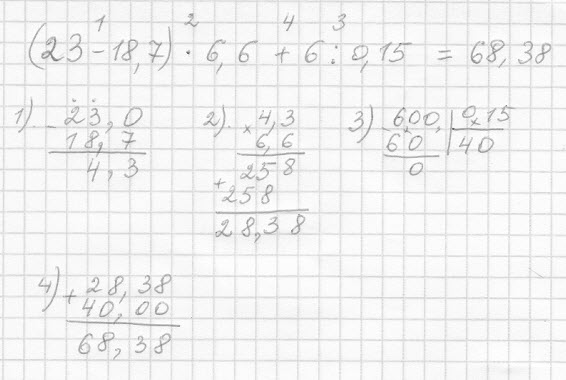 1 2 4 3
(23 - 18,7) · 6,6 + 6 : 0,15 = 68,38
1). - 23,0
18,7
4,3
2). × 4,3
6,6
258
+ 258
28,38
3) - 600, | 0,15
60 | 40
0
4) + 28,38
40,00
68,38